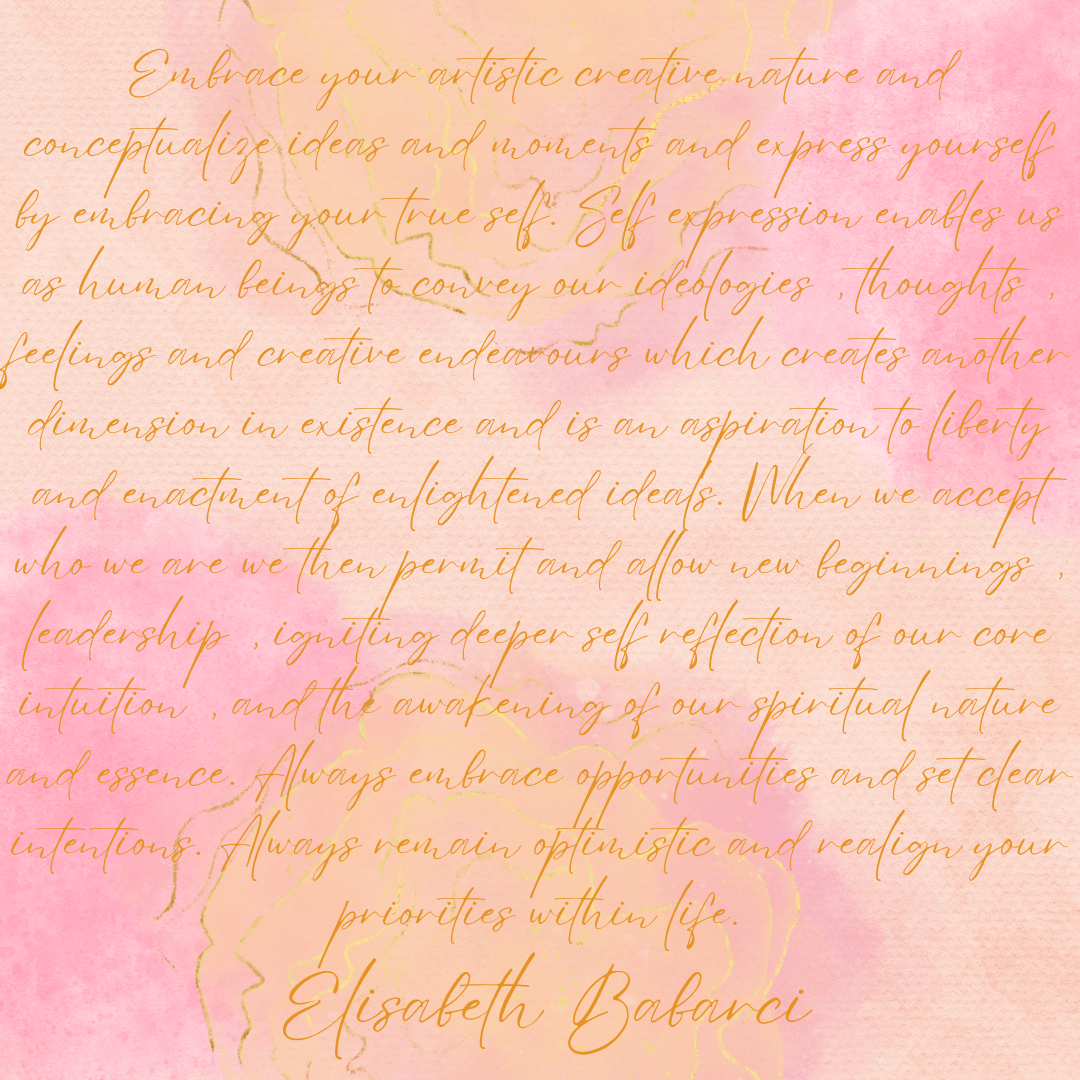 Embrace your artistic creative nature and
conceptualize ideas and moments and express yourself
by embracing your true self. Self expression enables us
as human beings to convey our ideologies , thoughts ,
feelings and creative endeavours which creates another
dimension in existence and is an aspiration to liberty
and enactment of enlightened ideals. When we accept
who we are we then permit and allow new beginnings ,
leadership , igniting deeper self reflection of our core
intuition , and the awakening of our spiritual nature
and essence. Always embrace opportunities and set clear
intentions. Always remain optimistic and realign your
priorities within life.
Elisabeth Babarci